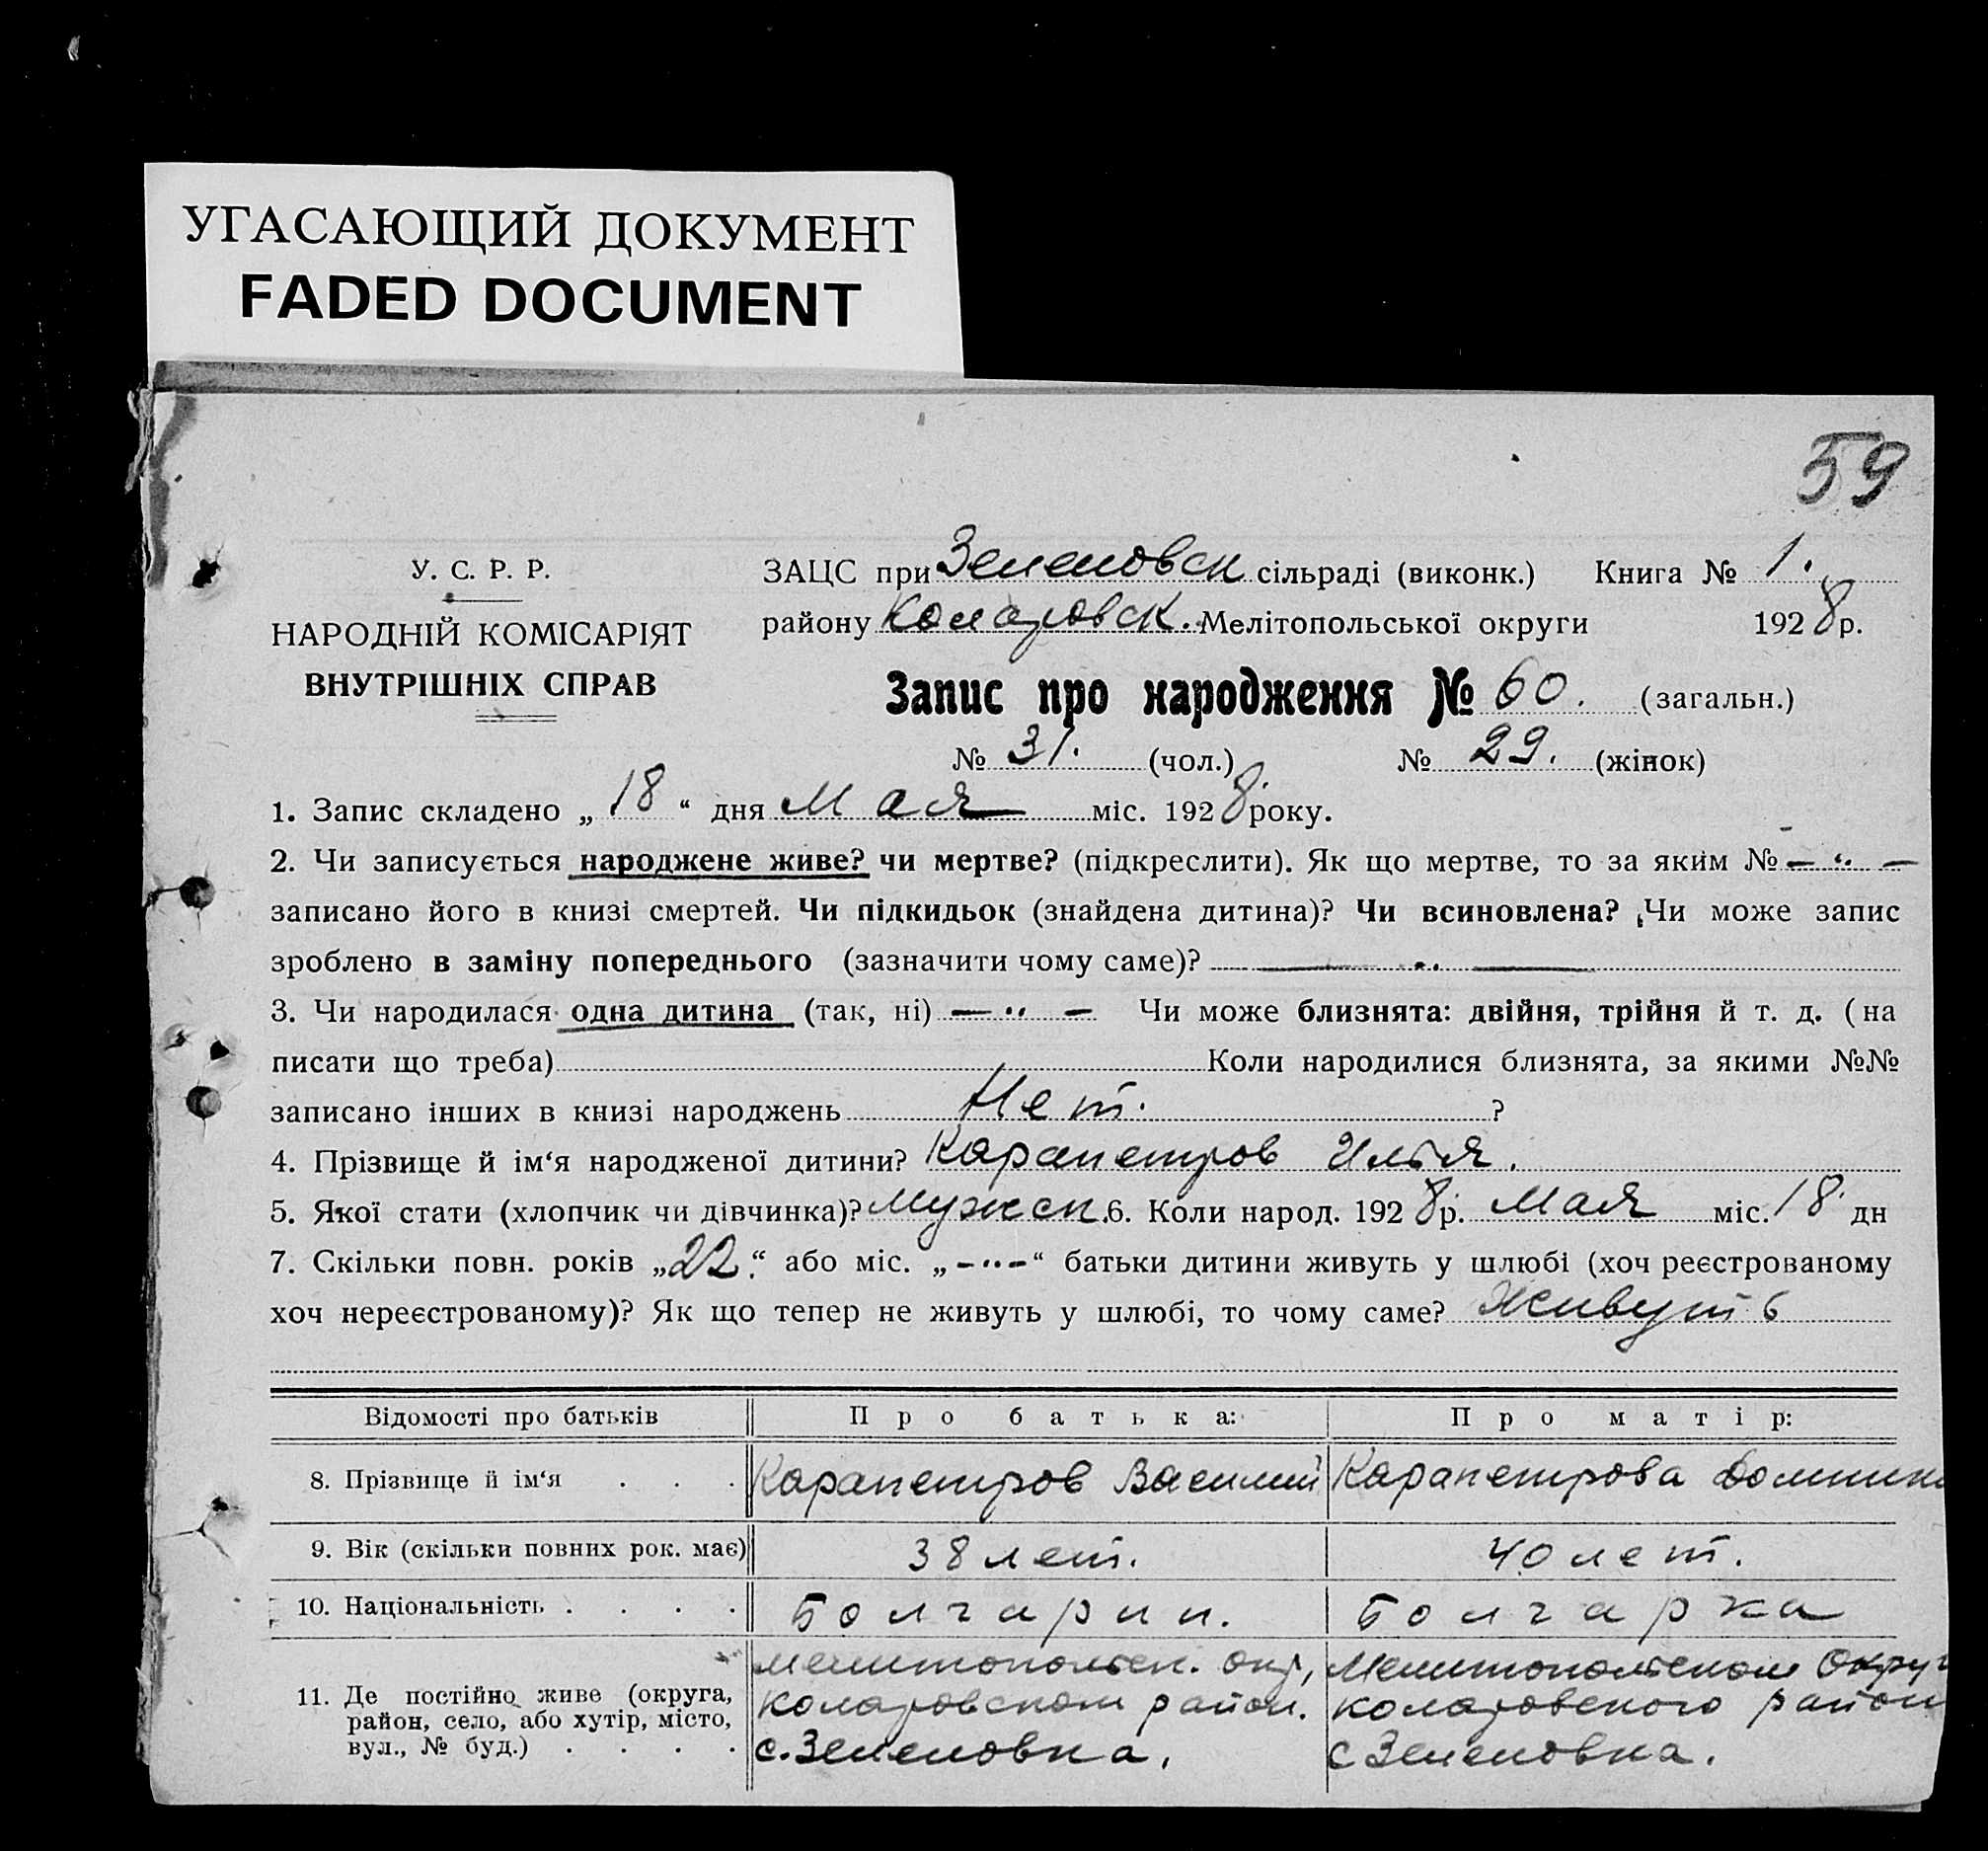 УГАСАЮЩИЙ ДОКУМЕНТ
FADED DOCUMENT
59
У. С. Р. Р.
НАРОДНІЙ КОМІСАРІЯТ
ВНУТРІШНІХ СПРАВ
ЗАЦС при Зеленовск сільраді (виконк.) Книга № 1.
району Коларовск. Мелітопольської округи 1928 р.
Запис про народження № 60. (загальн.)
№ 31. (чол.) № 29. (жінок)
1. Запис складено „18“ дня Мая міс. 1928 року.
2. Чи записується народжене живе? чи мертве? (підкреслити). Як що мертве, то за яким № — „ —
записано його в книзі смертей. Чи підкидьок (знайдена дитина)? Чи всиновлена? Чи може запис
зроблено в заміну попереднього (зазначити чому саме)? — „ —
3. Чи народилася одна дитина (так, ні) — „ — Чи може близнята: двійня, трійня й т. д. (на
писати що треба) Коли народилися близнята, за якими №№
записано інших в книзі народжень Нет. ?
4. Прізвище й ім‘я народженої дитини? Карапетров Илья.
5. Якої стати (хлопчик чи дівчинка)? Мужск. 6. Коли народ. 1928 р. Мая міс. 18 дн
7. Скільки повн. років „22.“ або міс. „-„-“ батьки дитини живуть у шлюбі (хоч реєстрованому
хоч нереєстрованому)? Як що тепер не живуть у шлюбі, то чому саме? Живут
Відомості про батьків Про батька: Про матір:
8. Прізвище й ім‘я . . . Карапетров Василий Карапетрова
9. Вік (скільки повних рок. має) 38 лет. 40 лет.
10. Національність . . . . Болгарин. Болгарка
11. Де постійно живе (округа,
район, село, або хутір, місто,
вул., № буд.) . . . .
Мелитопольск. окр,
Коларовском район.
с. Зеленовка.
Мелитопольском Округ
Коларовского район
с Зеленовка.